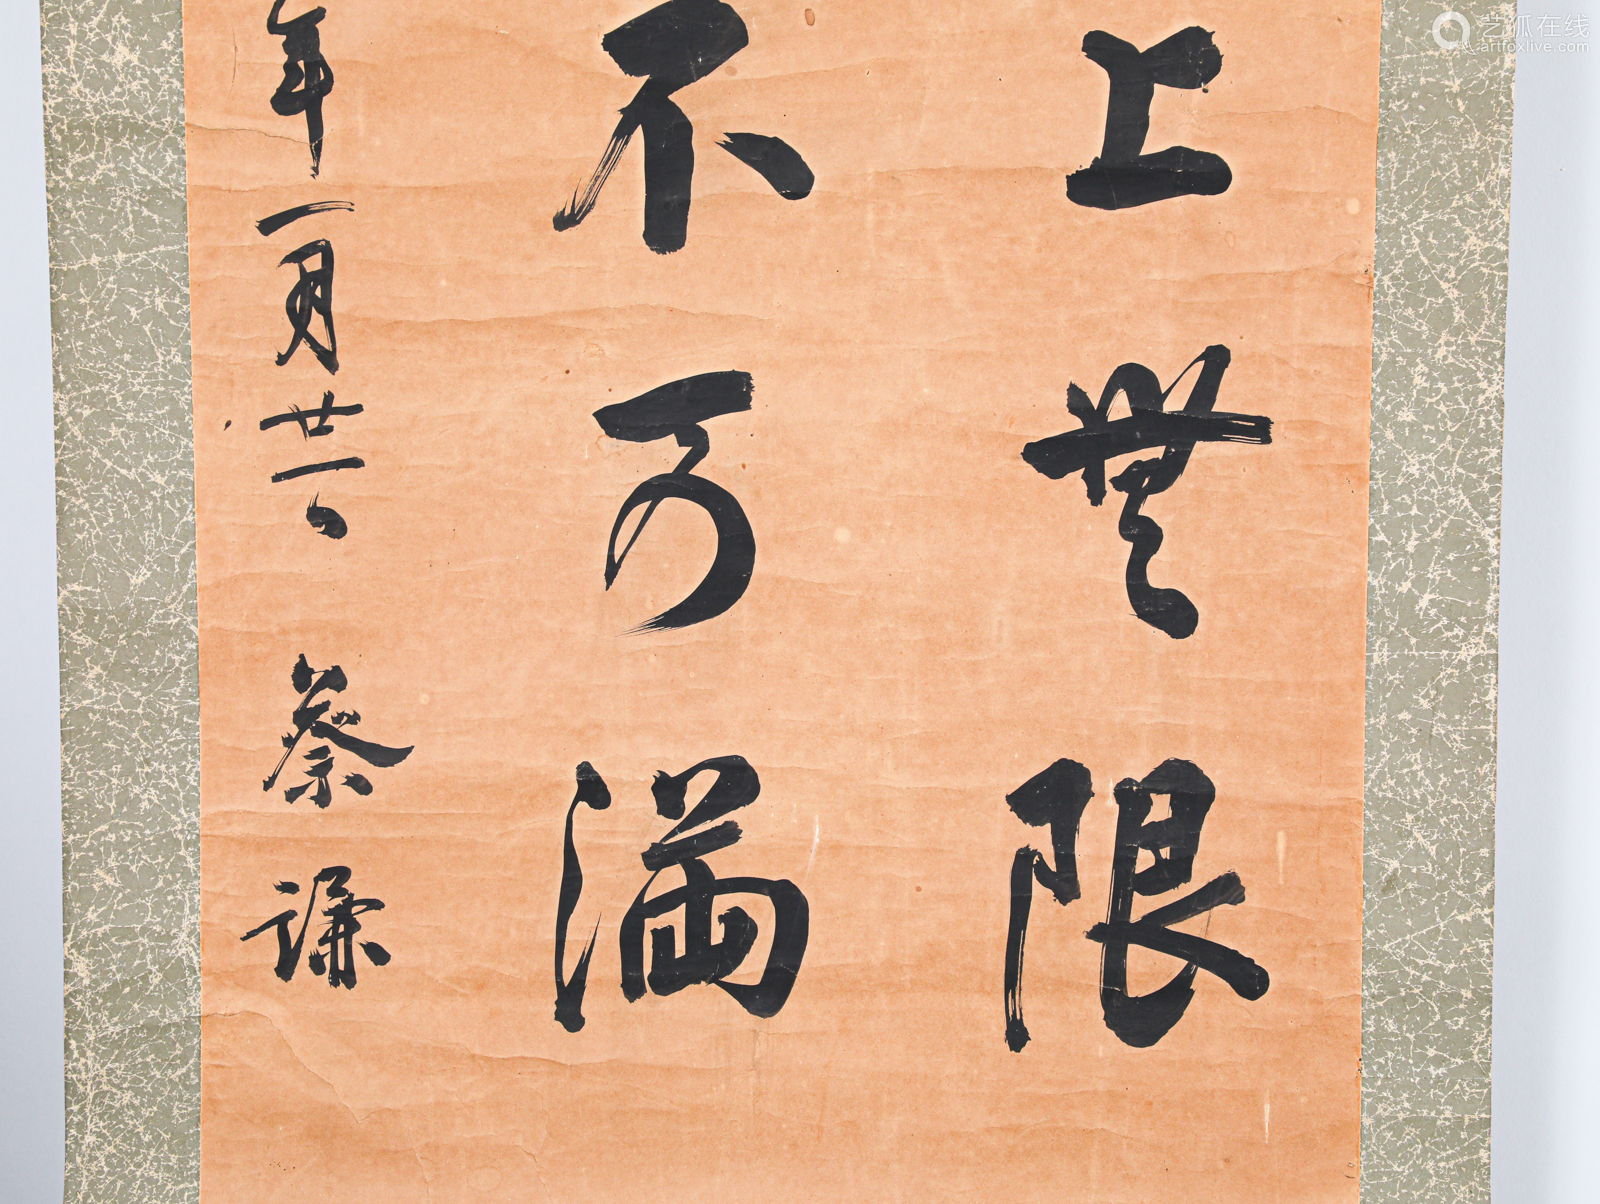 上無限
不可滿
年一月廿一日
蔡謙
艺狐在线
artfoxlive.com